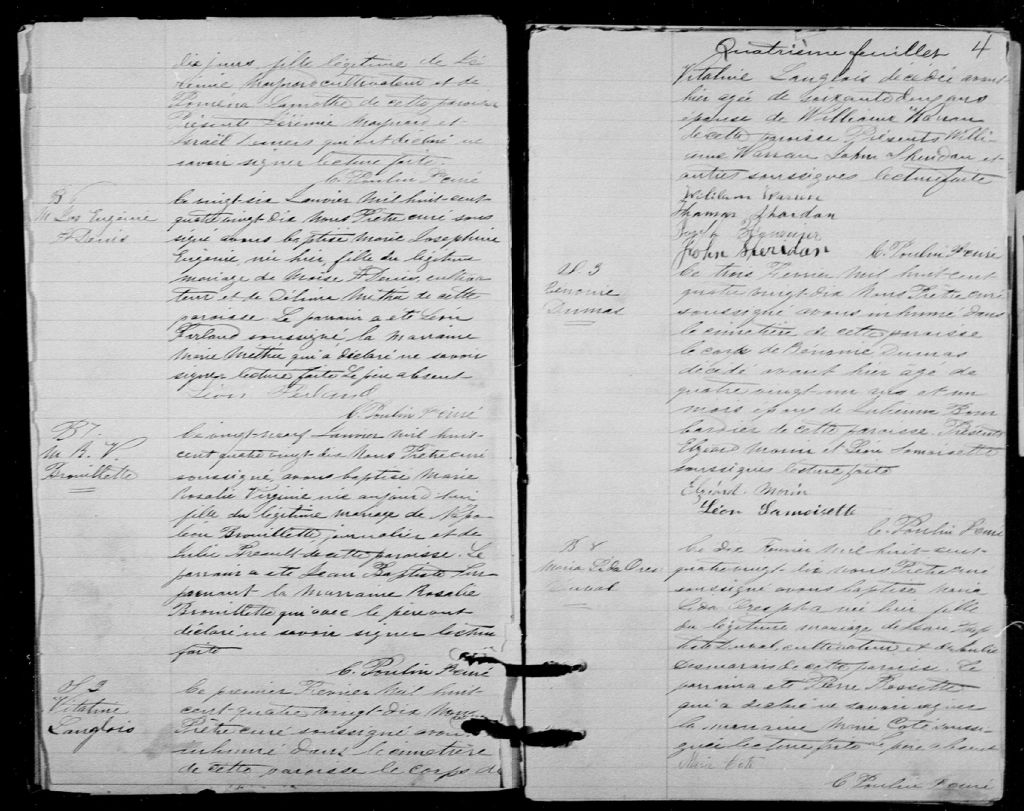 dix jours fille légitime de Jé
rémie Maynard cultivateur et de
Pomela Lamothe de cette paroisse
Présents Jérémie Maynard et
Israël qui ont déclaré ne
savoir signer lecture faite.
C. Poulin Ptre curé
B 6
M. Jos Eugénie
St Denis
Le vingt six Janvier mil huit cent
quatre vingt dix Nous Prêtre curé sous
signé avons baptisé Marie Josephine
Eugénie née hier, fille du légitime
mariage de Moise St Denis, cultiva
teur et de Délima Methé de cette
paroisse. Le parrain a été Léon
Ferland soussigné la marraine
Marie Methé qui a déclaré ne savoir
signer lecture faite Le père absent
Léon Ferland
C. Poulin Ptre curé
B 7
M. R. V.
Brouillette
Le vingt neuf Janvier mil huit
cent quatre vingt dix Nous Prêtre curé
soussigné, avons baptisé Marie
Rosalie Virginie née aujourd'hui
fille du légitime mariage de Napo
léon Brouillette, journalier et de
Julie de cette paroisse. Le
parrain a été Jean Baptiste
la Marraine Rosalie
Brouillette qui avec le père ont
déclaré ne savoir signer lecture
faite
C. Poulin Ptre curé
S 2
Vitaline
Langlois
Le premier Fevrier mil huit
cent quatre vingt dix Nous
Prêtre curé soussigné avons
inhumé dans le cimetière
de cette paroisse le corps de
Quatrième feuillet 4
Vitaline Langlois décédée avant
hier agée de soixante ans
épouse de William Warran
de cette paroisse Présents Willi
am Warran John Sheridan et
autres soussignés lecture faite
William Warran
Thomas Shardan
Joseph
John Sheridan C. Poulin Ptre curé
S 3
Bénonie
Dumas
Le trois Fevrier mil huit cent
quatre vingt dix Nous Prêtre curé
soussigné avons inhumé dans
le cimetière de cette paroisse
le corps de Bénonie Dumas
décédé avant hier agé de
quatre vingt un ans et un
mois époux de Bom
bardier de cette paroisse. Présents
Elzéard Morin et Léon Lamoisette
soussignés lecture faite
Elzéard Morin
Léon Lamoisette
C. Poulin Ptre curé
B 8
Maria Léda Ores
Duval
Le Dix Fevrier mil huit cent
quatre vingt dix nous Prêtre curé
soussigné avons baptisé Maria
Léda née hier fille
du légitime mariage de Jean Bap
tiste Duval, cultivateur et de Julie
Desmarais de cette paroisse. Le
parrain a été Pierre
qui a déclaré ne savoir signer
la marraine Marie Coté sous
signée lecture faite Le père absent
Marie Coté
C Poulin Ptre curé